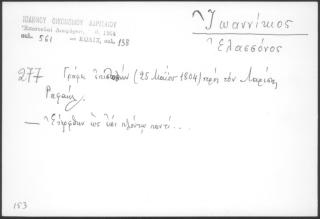 ΙΩΑΝΝΟΥ ΟΙΚΟΝΟΜΟΥ ΛΑΡΙΣΑΙΟΥ
Ἐπιστολαὶ Διαφόρων, 1964
σελ. 561 — ΚΩΔΙΞ, σελ. 138
Ἰωαννίκιος
Ἐλασσόνος
277 Γράφει ἐπιστολὴν (25 Μαΐου 1804) πρὸς τὸν Λαρίσης
Ραφαήλ.
— Εὐήρθην ὡς ἐπὶ πλούτῳ παντί...
153